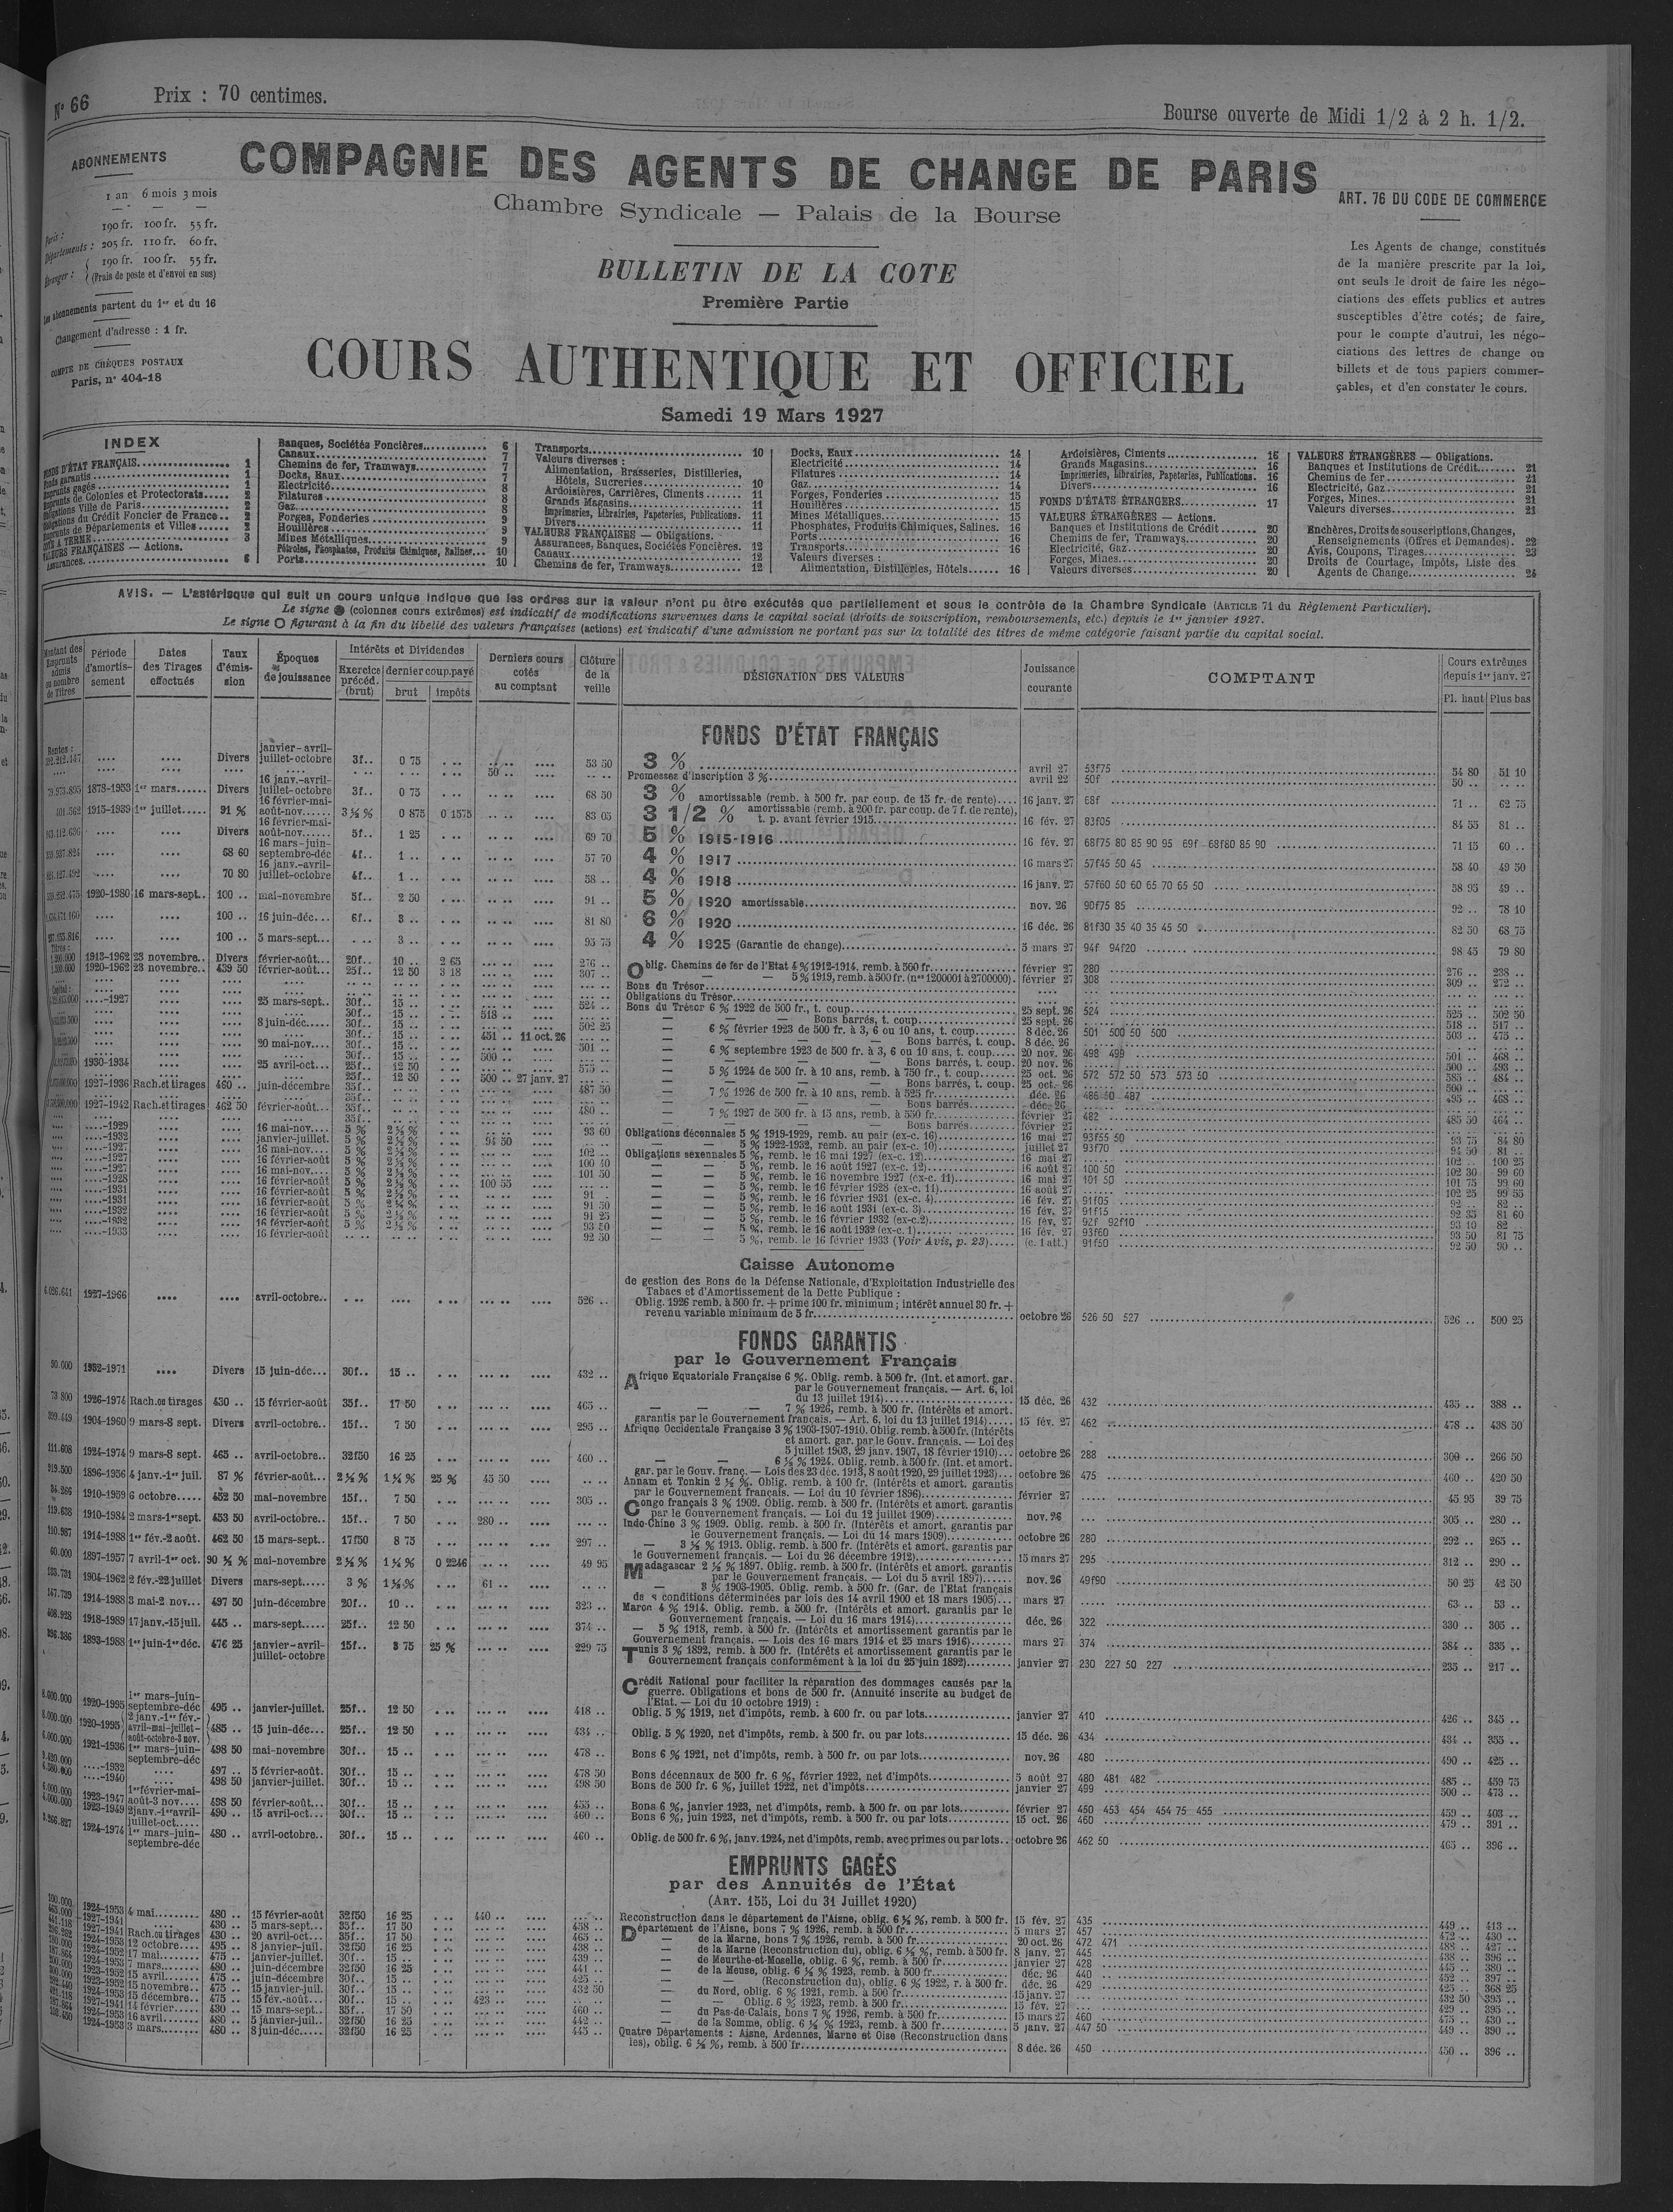 N° 66
Prix : 70 centimes.
Bourse ouverte de Midi 1/2 à 2 h. 1/2.
ABONNEMENTS
1 an 6 mois 3 mois
190 fr. 100 fr. 55 fr.
Départements : 205 fr. 110 fr. 60 fr.
Étranger : 190 fr. 100 fr. 55 fr.
(Frais de poste et d'envoi en sus)
Les abonnements partent du 1er et du 16
Changement d'adresse : 1 fr.
COMPTE DE CHÈQUES POSTAUX
Paris, n° 404-18
COMPAGNIE DES AGENTS DE CHANGE DE PARIS
Chambre Syndicale — Palais de la Bourse
BULLETIN DE LA COTE
Première Partie
COURS AUTHENTIQUE ET OFFICIEL
Samedi 19 Mars 1927
ART. 76 DU CODE DE COMMERCE
Les Agents de change, constitués
de la manière prescrite par la loi,
ont seuls le droit de faire les négo-
ciations des effets publics et autres
susceptibles d'être cotés; de faire,
pour le compte d'autrui, les négo-
ciations des lettres de change ou
billets et de tous papiers commer-
çables, et d'en constater le cours.
INDEX
FONDS D'ÉTAT FRANÇAIS 1
Fonds garantis 1
Emprunts gagés 1
Emprunts de Colonies et Protectorats 2
Obligations Ville de Paris 2
Obligations du Crédit Foncier de France 2
Emprunts de Départements et Villes 2
COTE A TERME 3
VALEURS FRANÇAISES — Actions.
Assurances 6
Banques, Sociétés Foncières 6
Canaux 7
Chemins de fer, Tramways 7
Docks, Eaux 7
Electricité 8
Filatures 8
Gaz 8
Forges, Fonderies 9
Houillères 9
Mines Métalliques 9
Pétroles, Phosphates, Produits Chimiques, Salines 10
Ports 10
Transports 10
Valeurs diverses :
Alimentation, Brasseries, Distilleries,
Hôtels, Sucreries 10
Ardoisières, Carrières, Ciments 11
Grands Magasins 11
Imprimeries, Librairies, Papeteries, Publications 11
Divers 11
VALEURS FRANÇAISES — Obligations.
Assurances, Banques, Sociétés Foncières 12
Canaux 12
Chemins de fer, Tramways 12
Docks, Eaux 14
Electricité 14
Filatures 14
Gaz 14
Forges, Fonderies 15
Houillères 15
Mines Métalliques 15
Phosphates, Produits Chimiques, Salines. 16
Ports 16
Transports 16
Valeurs diverses :
Alimentation, Distilleries, Hôtels 16
Ardoisières, Ciments 16
Grands Magasins 16
Imprimeries, Librairies, Papeteries, Publications. 16
Divers 16
FONDS D'ÉTATS ÉTRANGERS 17
VALEURS ÉTRANGÈRES — Actions.
Banques et Institutions de Crédit 20
Chemins de fer, Tramways 20
Electricité, Gaz 20
Forges, Mines 20
Valeurs diverses 20
VALEURS ÉTRANGÈRES — Obligations.
Banques et Institutions de Crédit 21
Chemins de fer 21
Electricité, Gaz 21
Forges, Mines 21
Valeurs diverses 21
Enchères, Droits de souscriptions, Changes,
Renseignements (Offres et Demandes) 22
Avis, Coupons, Tirages 23
Droits de Courtage, Impôts, Liste des
Agents de Change 24
AVIS. — L'astérisque qui suit un cours unique indique que les ordres sur la valeur n'ont pu être exécutés que partiellement et sous le contrôle de la Chambre Syndicale (ARTICLE 71 du Règlement Particulier).
Le signe ● (colonnes cours extrêmes) est indicatif de modifications survenues dans le capital social (droits de souscription, remboursements, etc.) depuis le 1er janvier 1927.
Le signe O figurant à la fin du libellé des valeurs françaises (actions) est indicatif d'une admission ne portant pas sur la totalité des titres de même catégorie faisant partie du capital social.
Montant des Emprunts admis ou nombre de Titres
Période d'amortissement
Dates des Tirages effectués
Taux d'émission
Époques de jouissance
Intérêts et Dividendes
Exercice précéd. (brut)
dernier coup. payé
brut impôts
Derniers cours cotés au comptant
Clôture de la veille
DÉSIGNATION DES VALEURS
Jouissance courante
COMPTANT
Cours extrêmes depuis 1er janv. 27
Pl. haut Plus bas
FONDS D'ÉTAT FRANÇAIS
Divers janvier-avril-juillet-octobre 3f.. 0 75 53 50 3 % avril 27 53f75 54 80 51 10
50 .. Promesses d'inscription 3 % avril 22 50f 50 ..
1878-1953 1er mars Divers 16 janv.-avril-juillet-octobre 3f.. 0 75 68 50 3 % amortissable (remb. à 500 fr. par coup. de 15 fr. de rente) 16 janv. 27 68f 71 .. 62 75
1915-1939 1er juillet 91 % 16 février-mai-août-nov. 3 ½ % 0 875 0 1575 83 05 3 1/2 % amortissable (remb. à 200 fr. par coup. de 7 f. de rente), t. p. avant février 1915 16 fév. 27 83f05 84 55 81 ..
Divers 16 février-mai-août-nov. 5f.. 1 25 69 70 5 % 1915-1916 16 fév. 27 68f75 80 85 90 95 69f 68f80 85 90 71 15 60 ..
68 60 16 mars-juin-septembre-déc 4f.. 1 .. 57 70 4 % 1917 16 mars 27 57f45 50 45 58 40 49 50
70 80 16 janv.-avril-juillet-octobre 4f.. 1 .. 58 .. 4 % 1918 16 janv. 27 57f60 50 60 65 70 65 50 58 95 49 ..
1920-1980 16 mars-sept. 100 .. mai-novembre 5f.. 2 50 91 .. 5 % 1920 amortissable nov. 26 90f75 85 92 .. 78 10
100 .. 16 juin-déc. 6f.. 3 .. 81 80 6 % 1920 16 déc. 26 81f30 35 40 35 45 50 82 50 68 75
100 .. 5 mars-sept. 3 .. 93 75 4 % 1925 (Garantie de change) 5 mars 27 94f 94f20 98 45 79 80
1913-1962 23 novembre Divers février-août 20f.. 10 .. 2 65 276 .. Oblig. Chemins de fer de l'Etat 4 % 1912-1914, remb. à 500 fr. février 27 280 276 .. 238 ..
1920-1962 23 novembre 439 50 février-août 25f.. 12 50 3 18 307 .. — — 5 % 1919, remb. à 500 fr. (nos 1200001 à 2700000) février 27 308 309 .. 272 ..
Bons du Trésor
Obligations du Trésor
....-1927 25 mars-sept. 30f.. 15 .. 524 .. Bons du Trésor 6 % 1922 de 500 fr., t. coup. 25 sept. 26 524 525 .. 502 50
30f.. 15 .. 518 .. — Bons barrés, t. coup. 25 sept. 26 518 .. 517 ..
8 juin-déc. 30f.. 15 .. 502 25 — 6 % février 1923 de 500 fr. à 3, 6 ou 10 ans, t. coup. 8 déc. 26 501 500 50 500 503 .. 475 ..
30f.. 15 .. 451 .. 11 oct. 26 — Bons barrés, t. coup. 8 déc. 26
20 mai-nov. 30f.. 15 .. 501 .. — 6 % septembre 1923 de 500 fr. à 3, 6 ou 10 ans, t. coup. 20 nov. 26 498 499 501 .. 468 ..
30f.. 15 .. 500 .. — Bons barrés, t. coup. 20 nov. 26 500 .. 493 ..
1930-1934 25 avril-oct. 25f.. 12 50 575 .. — 5 % 1924 de 500 fr. à 10 ans, remb. à 750 fr., t. coup. 25 oct. 26 572 572 50 573 573 50 585 .. 484 ..
25f.. 12 50 500 .. 27 janv. 27 — Bons barrés, t. coup. 25 oct. 26 500 ..
1927-1936 Rach. et tirages 460 .. juin-décembre 35f.. 487 50 — 7 % 1926 de 500 fr. à 10 ans, remb. à 525 fr. déc. 26 486 50 487 495 .. 468 ..
35f.. — Bons barrés déc. 26
1927-1942 Rach. et tirages 462 50 février-août 35f.. 480 .. — 7 % 1927 de 500 fr. à 15 ans, remb. à 550 fr. février 27 482 485 50 464 ..
35f.. — Bons barrés février 27
....-1929 16 mai-nov. 5 % 2 ½ % 93 60 Obligations décennales 5 % 1919-1929, remb. au pair (ex-c. 16) 16 mai 27 93f55 50 93 75 84 80
....-1932 janvier-juillet. 5 % 2 ½ % 94 50 — 5 % 1922-1932, remb. au pair (ex-c. 10) juillet 27 93f70 94 50 81 ..
....-1927 16 mai-nov. 5 % 2 ½ % 102 .. Obligations sexennales 5 %, remb. le 16 mai 1927 (ex-c. 12) 16 mai 27 102 .. 100 25
....-1927 16 février-août 5 % 2 ½ % 100 40 — 5 %, remb. le 16 août 1927 (ex-c. 12) 16 août 27 100 50 102 30 99 60
....-1927 16 mai-nov. 5 % 2 ½ % 101 50 — 5 %, remb. le 16 novembre 1927 (ex-c. 11) 16 mai 27 101 50 101 75 99 60
....-1928 16 février-août 5 % 2 ½ % 100 55 — 5 %, remb. le 16 février 1928 (ex-c. 11) 16 août 27 102 25 99 55
....-1931 16 février-août 5 % 2 ½ % 91 .. — 5 %, remb. le 16 février 1931 (ex-c. 4) 16 fév. 27 91f05 92 .. 82 ..
....-1931 16 février-août 5 % 2 ½ % 91 50 — 5 %, remb. le 16 août 1931 (ex-c. 3) 16 fév. 27 91f15 92 35 81 60
....-1932 16 février-août 5 % 2 ½ % 91 25 — 5 %, remb. le 16 février 1932 (ex-c. 2) 16 fév. 27 92f 92f10 93 10 82 ..
....-1932 16 février-août 5 % 2 ½ % 93 50 — 5 %, remb. le 16 août 1932 (ex-c. 1) 16 fév. 27 93f60 93 50 81 75
....-1933 16 février-août 92 50 — 5 %, remb. le 16 février 1933 (Voir Avis, p. 23) (c. 1 att.) 91f50 92 50 90 ..
Caisse Autonome
de gestion des Bons de la Défense Nationale, d'Exploitation Industrielle des
Tabacs et d'Amortissement de la Dette Publique :
1927-1966 avril-octobre 526 .. Oblig. 1926 remb. à 500 fr. + prime 100 fr. minimum ; intérêt annuel 30 fr. +
revenu variable minimum de 5 fr. octobre 26 526 50 527 526 .. 500 25
FONDS GARANTIS
par le Gouvernement Français
1932-1971 Divers 15 juin-déc. 30f.. 15 .. 432 .. Afrique Equatoriale Française 6 %. Oblig. remb. à 500 fr. (Int. et amort. gar. par le Gouvernement français. — Art. 6, loi du 13 juillet 1914) 15 déc. 26 432 435 .. 388 ..
73 800 1926-1974 Rach. ou tirages 430 .. 15 février-août 35f.. 17 50 465 .. — 7 % 1926, remb. à 500 fr. (Intérêts et amort. garantis par le Gouvernement français. — Art. 6, loi du 13 juillet 1914) 15 fév. 27 462 478 .. 438 50
399.449 1904-1960 9 mars-8 sept. Divers avril-octobre 15f.. 7 50 295 .. Afrique Occidentale Française 3 % 1903-1907-1910. Oblig. remb. à 500 fr. (Intérêts et amort. gar. par le Gouv. français. — Loi des 5 juillet 1903, 29 janv. 1907, 18 février 1910) octobre 26 288 300 .. 266 50
111.608 1924-1974 9 mars-8 sept. 465 .. avril-octobre 32f50 16 25 460 .. — 6 ½ % 1924. Oblig. remb. à 500 fr. (Int. et amort. gar. par le Gouv. franç. — Lois des 23 déc. 1913, 8 août 1920, 29 juillet 1923) octobre 26 475 460 .. 420 50
219.500 1896-1956 4 janv.-1er juil. 87 % février-août 2 ½ % 1 ¼ % 25 % 45 50 Annam et Tonkin 2 ½ %. Oblig. remb. à 100 fr. (Intérêts et amort. garantis par le Gouvernement français. — Loi du 10 février 1896) février 27 45 95 39 75
1910-1959 6 octobre 452 50 mai-novembre 15f.. 7 50 305 .. Congo français 3 % 1909. Oblig. remb. à 500 fr. (Intérêts et amort. garantis par le Gouvernement français. — Loi du 12 juillet 1909) nov. 26 305 .. 280 ..
119.638 1910-1984 2 mars-1er sept. 453 50 avril-octobre 15f.. 7 50 280 .. Indo-Chine 3 % 1909. Oblig. remb. à 500 fr. (Intérêts et amort. garantis par le Gouvernement français. — Loi du 14 mars 1909) octobre 26 280 292 .. 265 ..
110.987 1914-1988 1er fév.-2 août. 462 50 15 mars-sept. 17f50 8 75 297 .. — 3 ½ % 1913. Oblig. remb. à 500 fr. (Intérêts et amort. garantis par le Gouvernement français. — Loi du 26 décembre 1912) 15 mars 27 295 312 .. 290 ..
60.000 1897-1957 7 avril-1er oct. mai-novembre 2 ½ % 1 ¼ % 0 2246 49 95 Madagascar 2 ½ % 1897. Oblig. remb. à 500 fr. (Intérêts et amort. garantis par le Gouvernement français. — Loi du 5 avril 1897) nov. 26 49f90 50 25 42 50
1904-1962 2 fév.-22 juillet Divers mars-sept. 3 % 1 ½ % 61 .. — 3 % 1903-1905. Oblig. remb. à 500 fr. (Gar. de l'Etat français conditions déterminées par lois des 14 avril 1900 et 18 mars 1905) mars 27 63 .. 53 ..
147.739 1914-1988 3 mai-2 nov. 497 50 juin-décembre 20f.. 10 .. 323 .. Maroc 4 % 1914. Oblig. remb. à 500 fr. (Intérêts et amort. garantis par le Gouvernement français. — Loi du 16 mars 1914) déc. 26 322 330 .. 305 ..
408.928 1918-1989 17 janv.-15 juil. 445 .. mars-sept. 25f.. 12 50 374 .. — 5 % 1918, remb. à 500 fr. (Intérêts et amortissement garantis par le Gouvernement français. — Lois des 16 mars 1914 et 25 mars 1916) mars 27 374 384 .. 335 ..
396.386 1893-1988 1er juin-1er déc. 476 25 janvier-avril-juillet-octobre 15f.. 3 75 25 % 229 75 Tunis 3 % 1892, remb. à 500 fr. (Intérêts et amortissement garantis par le Gouvernement français conformément à la loi du 25 juin 1892) janvier 27 230 227 50 227 235 .. 217 ..
Crédit National pour faciliter la réparation des dommages causés par la
guerre. Obligations et bons de 500 fr. (Annuité inscrite au budget de
l'Etat. — Loi du 10 octobre 1919) :
1920-1995 1er mars-juin-septembre-déc 495 .. janvier-juillet. 25f.. 12 50 418 .. Oblig. 5 % 1919, net d'impôts, remb. à 600 fr. ou par lots janvier 27 410 426 .. 345 ..
1920-1995 2 janv.-1er fév.-avril-mai-juillet-août-octobre-3 nov. 485 .. 15 juin-déc. 25f.. 12 50 434 .. Oblig. 5 % 1920, net d'impôts, remb. à 500 fr. ou par lots 15 déc. 26 434 434 .. 355 ..
1921-1936 1er mars-juin-septembre-déc 498 50 mai-novembre 30f.. 15 .. 478 .. Bons 6 % 1921, net d'impôts, remb. à 500 fr. ou par lots nov. 26 480 490 .. 425 ..
....-1932 497 .. 5 février-août. 30f.. 15 .. 478 50 Bons décennaux de 500 fr. 6 %, février 1922, net d'impôts 5 août 27 480 481 482 485 .. 459 75
....-1940 498 50 janvier-juillet. 30f.. 15 .. 498 50 Bons de 500 fr. 6 %, juillet 1922, net d'impôts janvier 27 499 500 .. 473 ..
1923-1947 1er février-mai-août-3 nov. 498 50 février-août 30f.. 15 .. 455 .. Bons 6 %, janvier 1923, net d'impôts, remb. à 500 fr. ou par lots février 27 450 453 454 454 75 455 459 .. 403 ..
1923-1949 2 janv.-1er avril-juillet-oct. 490 .. 15 avril-oct. 30f.. 15 .. 460 .. Bons 6 %, juin 1923, net d'impôts, remb. à 500 fr. ou par lots 15 oct. 26 460 479 .. 391 ..
1924-1974 1er mars-juin-septembre-déc 480 .. avril-octobre 30f.. 15 .. 460 .. Oblig. de 500 fr. 6 %, janv. 1924, net d'impôts, remb. avec primes ou par lots octobre 26 462 50 465 .. 396 ..
EMPRUNTS GAGÉS
par des Annuités de l'État
(ART. 155, Loi du 31 Juillet 1920)
1924-1953 4 mai 480 .. 15 février-août 32f50 16 25 440 .. Reconstruction dans le département de l'Aisne, oblig. 6 ½ %, remb. à 500 fr. 15 fév. 27 435 449 .. 413 ..
1927-1941 430 .. 5 mars-sept. 35f.. 17 50 458 .. Département de l'Aisne, bons 7 % 1926, remb. à 500 fr. 5 mars 27 457 472 .. 430 ..
1927-1941 Rach. ou tirages 430 .. 20 avril-oct. 35f.. 17 50 465 .. — de la Marne, bons 7 % 1926, remb. à 500 fr. 20 oct. 26 472 471 488 .. 427 ..
1924-1953 12 octobre 495 .. 8 janvier-juil. 32f50 16 25 438 .. — de la Marne (Reconstruction du), oblig. 6 ½ %, remb. à 500 fr. 8 janv. 27 445 438 .. 396 ..
1924-1952 17 mai 475 .. janvier-juillet. 30f.. 15 .. 439 .. — de Meurthe-et-Moselle, oblig. 6 %, remb. à 500 fr. janvier 27 428 445 .. 380 ..
1924-1953 7 mars 480 .. juin-décembre 32f50 16 25 441 .. — de la Meuse, oblig. 6 ½ % 1923, remb. à 500 fr. déc. 26 440 452 .. 397 ..
1923-1952 15 avril 475 .. juin-décembre 30f.. 15 .. 425 .. — (Reconstruction du), oblig. 6 % 1922, r. à 500 fr. déc. 26 429 425 .. 368 25
1923-1952 15 novembre 475 .. 15 janvier-juil. 30f.. 15 .. 432 50 — du Nord, oblig. 6 % 1921, remb. à 500 fr. 15 janv. 27 432 50 395 ..
1924-1953 15 décembre 475 .. 15 fév.-août 30f.. 15 .. 423 .. — Oblig. 6 % 1923, remb. à 500 fr. 15 fév. 27 429 .. 395 ..
1927-1941 14 février 430 .. 15 mars-sept. 35f.. 17 50 460 .. — du Pas-de-Calais, bons 7 % 1926, remb. à 500 fr. 15 mars 27 460 475 .. 430 ..
1924-1953 16 avril 480 .. 5 janvier-juil. 32f50 16 25 442 .. — de la Somme, oblig. 6 ½ % 1923, remb. à 500 fr. 5 janv. 27 447 50 449 .. 390 ..
1924-1953 3 mars 480 .. 8 juin-déc. 32f50 16 25 445 .. Quatre Départements : Aisne, Ardennes, Marne et Oise (Reconstruction dans
les), oblig. 6 ½ %, remb. à 500 fr. 8 déc. 26 450 450 .. 396 ..